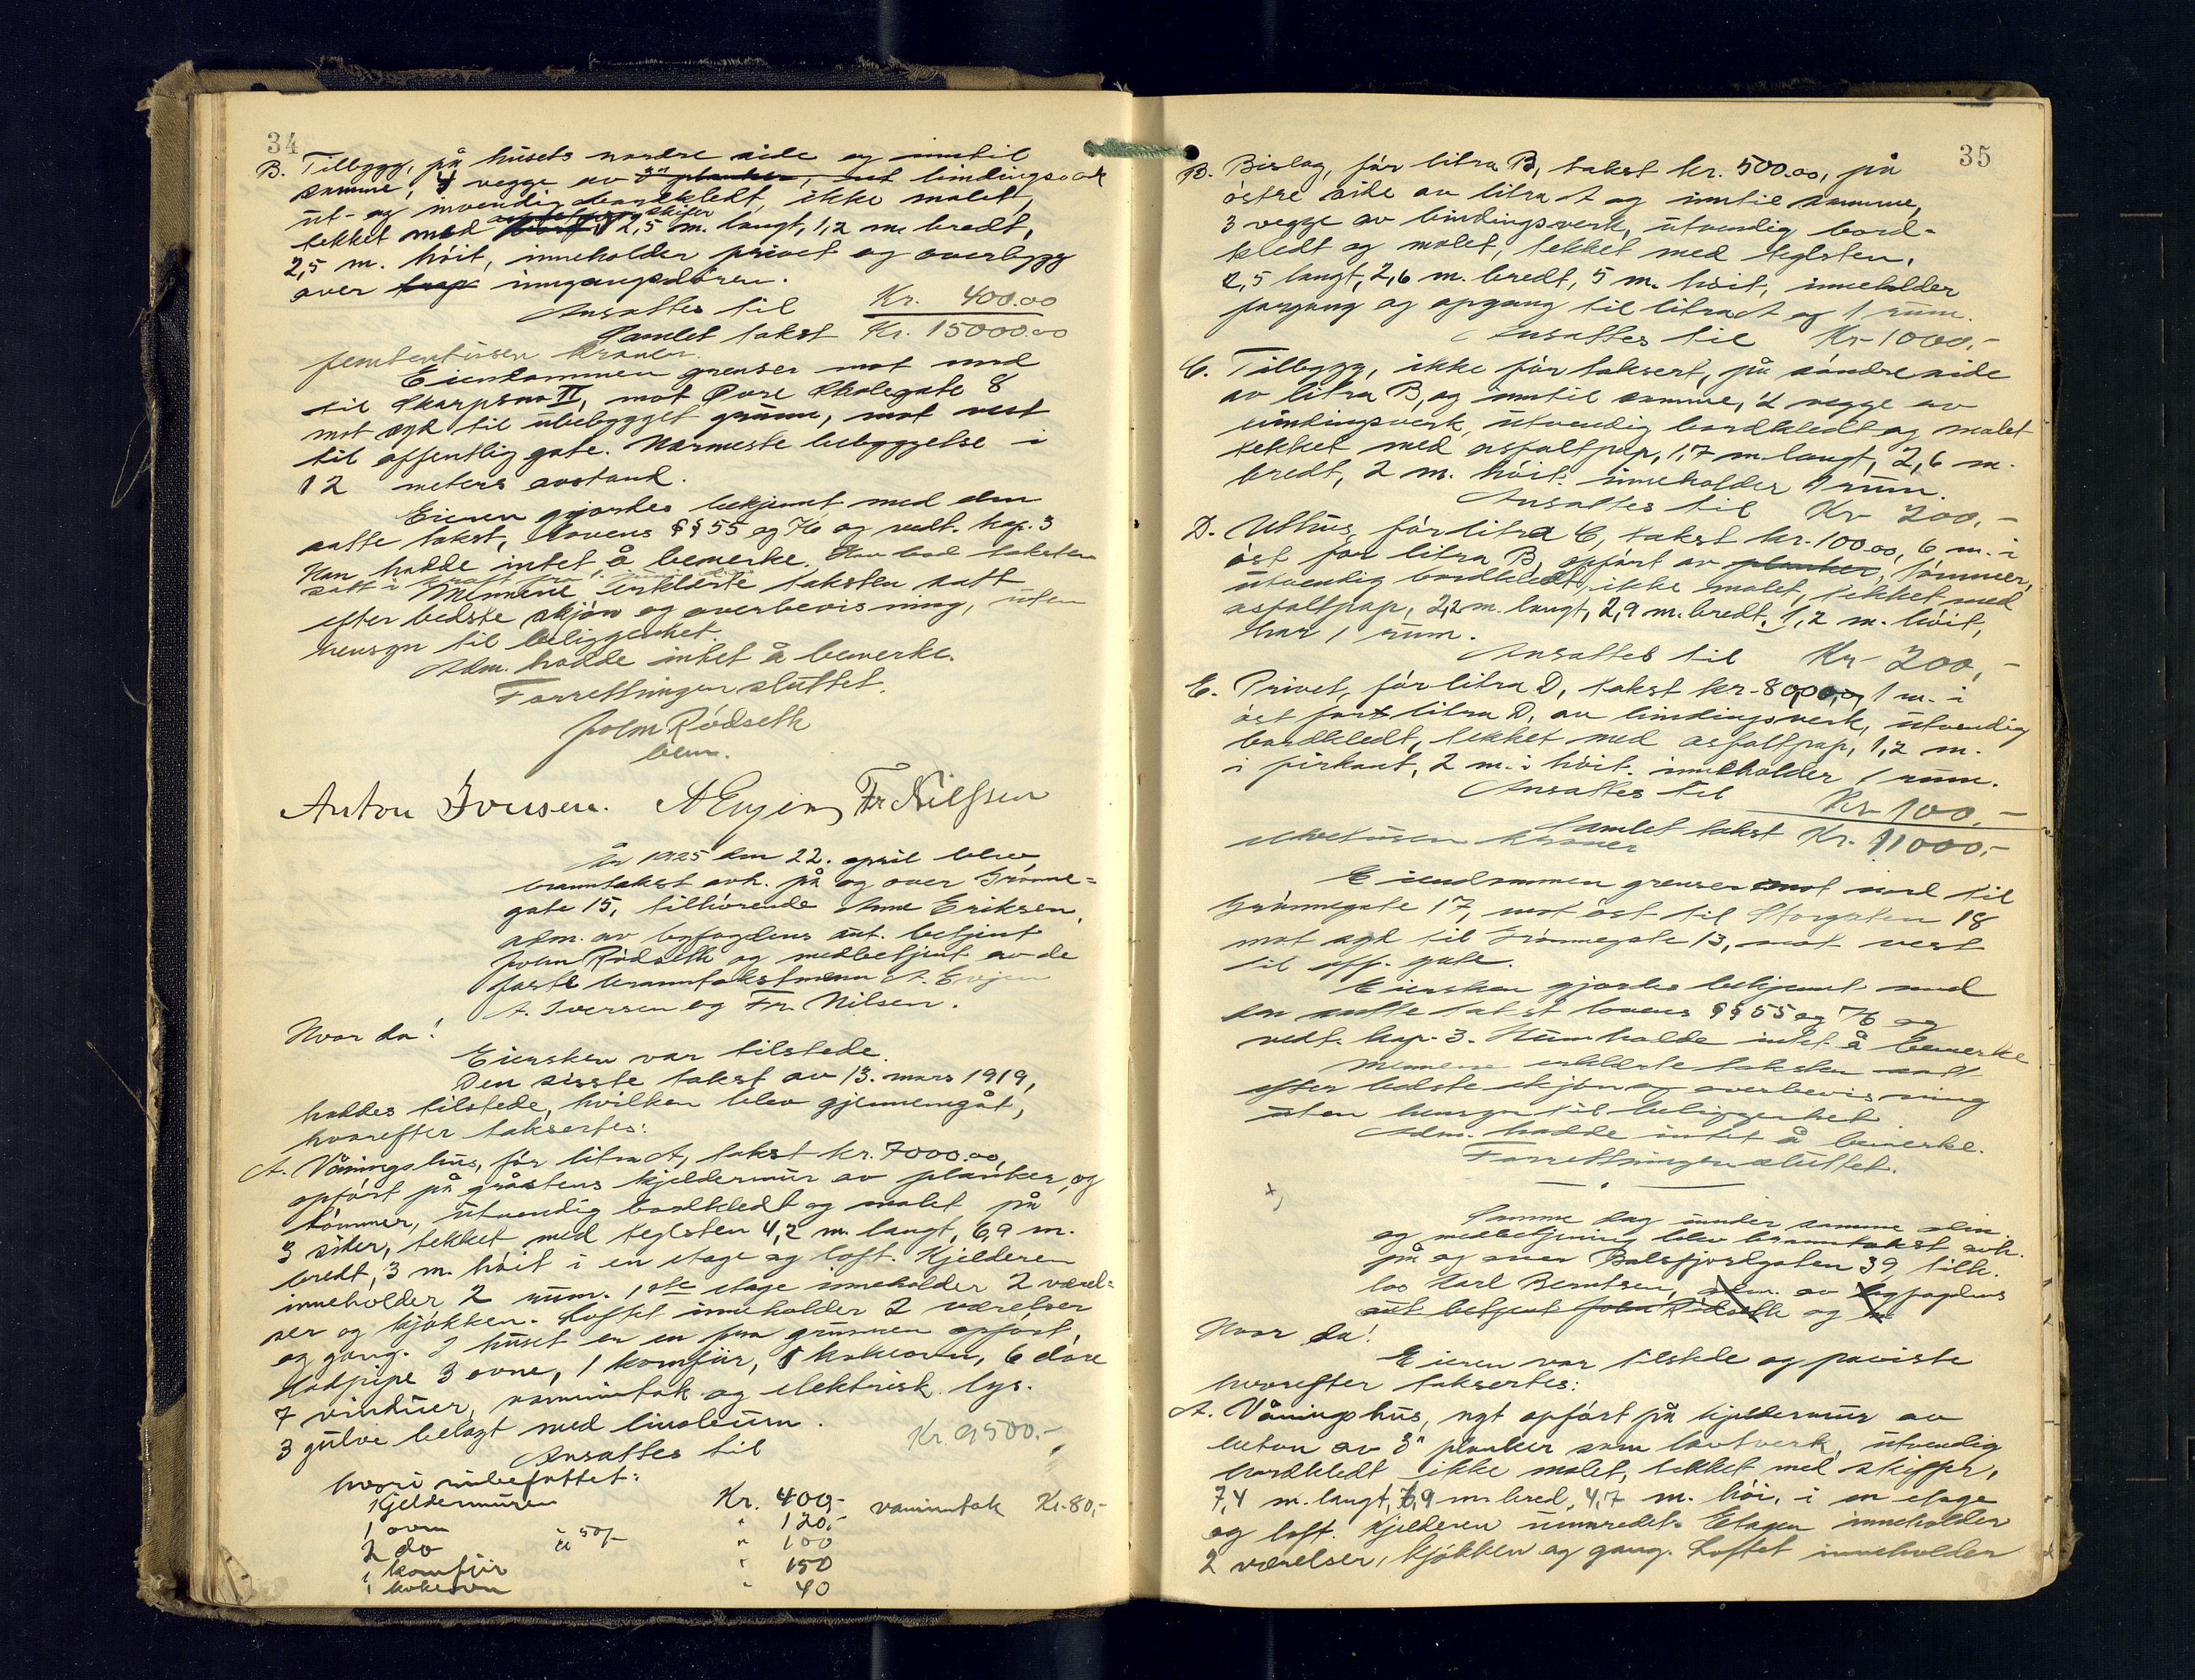 34
B. Tilbygg, på husets nordre side og inntil
samme, 4 vegge av 3" planker, ut bindingsverk
ut- og invendig bordkledt, ikke malet,
tekket med skifer 2,5 m. langt, 1,2 m. bredt,
2,5 m. höit, inneholder privet og overbygg
over trap inngangsdören.
Ansattes til Kr. 400.00
Samlet takst Kr. 15000.00
femtentusen kroner.
Eiendommen grenser mot nord
til Skarpsno II, mot Övre Skolegate 8
mot syd til ubebygget grunn, mot vest
til offentlig gate. Nærmeste bebyggelse i
12 meters avstand.
Eieren gjordes bekjent med den
satte takst, lovens §§ 55 og 76 og vedt. kap. 3
Han hadde intet å bemerke. Han bad taksten
satt i kraft fra
Mennene erklærte taksten satt
efter bedste skjön og overbevisning, uten
hensyn til beliggenhet.
Adm. hadde intet å bemerke.
Forretningen sluttet.
John Rödseth
bem.
Anton Iversen. A Evjen Fr Nilssen
År 1925 den 22. april blev
branntakst avh. på og over Grönne-
gate 15, tilhörende Anne Eriksen,
adm. av byfogdens aut. betjent
John Rödseth og medbetjent av de
faste branntakstmenn A. Evjen
A. Iversen og Fr. Nilsen.
Hvor da!
Eiersken var tilstede.
Den sisste takst av 13. mars 1919,
haddes tilstede, hvilken blev gjennemgåt,
hvorefter taksertes:
A. Våningshus, för litra A, takst kr. 7000.00,
opfört på gråstens kjeldermur av planker, og
tömmer, utvendig bordkledt og malet på
3 sider, tekket med teglsten 4,2 m. langt, 6,9 m.
bredt, 3 m. höit i en etage og loft. Kjelderen
inneholder 2 rum. 1ste etage inneholder 2 værel-
ser og kjökken. Loftet inneholder 2 værelser
og gang. I huset er en fra grunnen opfört,
Halvpipe 3 ovne, 1 komfür, 1 kokeovn, 6 döre
7 vinduer, vanninntak og elektrisk lys.
3 gulve belagt med linoleum.
Ansattes til Kr. 9500.-
hvori innbefattet:
Kjeldermuren Kr. 400,- vanninntak Kr. 80,-
1 ovn " 120.-
2 do à 50/- " 100
1 komfür " 150
1 kokeovn " 40
35
B. Bislag, för litra B, takst kr. 500.00, på
östre side av litra A og inntil samme,
3 vegge av bindingsverk, utvendig bord-
kledt og malet, tekket med teglsten,
2,5 langt, 2,6 m. bredt, 5 m. höit, inneholder
forgang og opgang til litra A og 1 rum.
Ansattes til Kr. 1000.-
C. Tilbygg, ikke för taksert, på söndre side
av litra B, og inntil samme, 2 vegge av
bindingsverk, utvendig bordkledt og malet
tekket med asfaltpap, 1,7 m. langt, 2,6 m.
bredt, 2 m. höit. inneholder 1 rum.
Ansattes til Kr 200.-
D. Uthus, för litra C, takst kr. 100.00, 6 m. i
öst för litra B, opfört av planker, tömmer,
utvendig bordkledt, ikke malet, tekket med
asfaltpap, 2,2 m. langt, 2,9 m. bredt, 1,2 m. höit,
har 1 rum.
Ansattes til Kr 200,-
E. Privet, för litra D, takst kr. 80,00, 1 m. i
öst for litra D, av bindingsverk, utvendig
bordkledt, tekket med asfaltpap, 1,2 m.
i firkant, 2 m. i höit. inneholder 1 rum.
Ansattes til Kr 100.-
Samlet takst Kr. 11000,-
ellevetusen kroner
Eiendommen grenser mot nord til
Grönnegate 17, mot öst til Storgaten 18
mot syd til Grönnegate 13, mot vest
til off. gate.
Eiersken gjordes bekjent med
den satte takst lovens §§ 55 og 76 og
vedt. kap. 3. Hun hadde intet å bemerke
Mennene erklærte taksten satt
efter bedste skjön og overbevisning
uten hensyn til beliggenhet
Adm. hadde intet å bemerke.
Forretningen sluttet.
Samme dag under samme adm
og medbetjening blev branntakst avh.
på og over Balsfjordgaten 39, tilh.
los Karl Berntsen, adm. av byfogdens
aut betjent John Rödseth og m
Hvor da!
Eieren var tilstede og påviste
hvorefter taksertes:
A. Våningshus, nyt opfört på kjeldermur av
beton av 3" planker som lavtverk, utvendig
bordkledt ikke malet, tekket med skiffer,
7,4 m. langt, 7,9 m. bred, 4,7 m. höi, i en etage
og loft. Kjelderen uinnredet. Etagen inneholder
2 værelser, kjökken og gang. Loftet inneholder